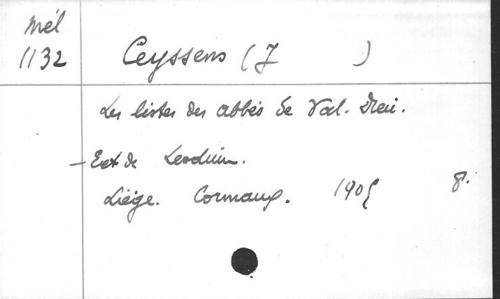 Mél
1132
Ceyssens (J )
Les listes des abbés de Val. Dieu.
- Ext de Leodium.
Liège. Cormaux. 1905 8.